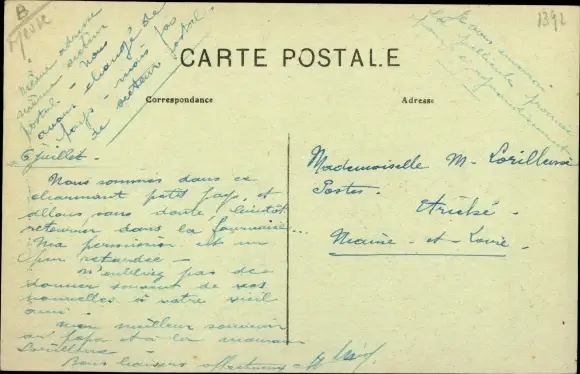 B
Meuse
1392
Même adresse
même secteur
postal - Nous
avons changé de
pays - mais pas
de secteur postal
Je vous enverrai
la pellicule promise
pour l'agrandissement
CARTE POSTALE
Correspondance
Adresse
6 juillet -
Nous sommes dans ce
charmant petit pays, et
allons sans doute bientôt
retourner dans la fournaise...
Ma permission est un
peu retardée -
N'oubliez pas de
donner souvent de vos
nouvelles à votre vieil
ami -
Mon meilleur souvenir
au papa et à la maman
Lorilleux
Bons baisers affectueux
Mademoiselle M. Lorilleux
Postes -
Etriché -
Maine-et-Loire -